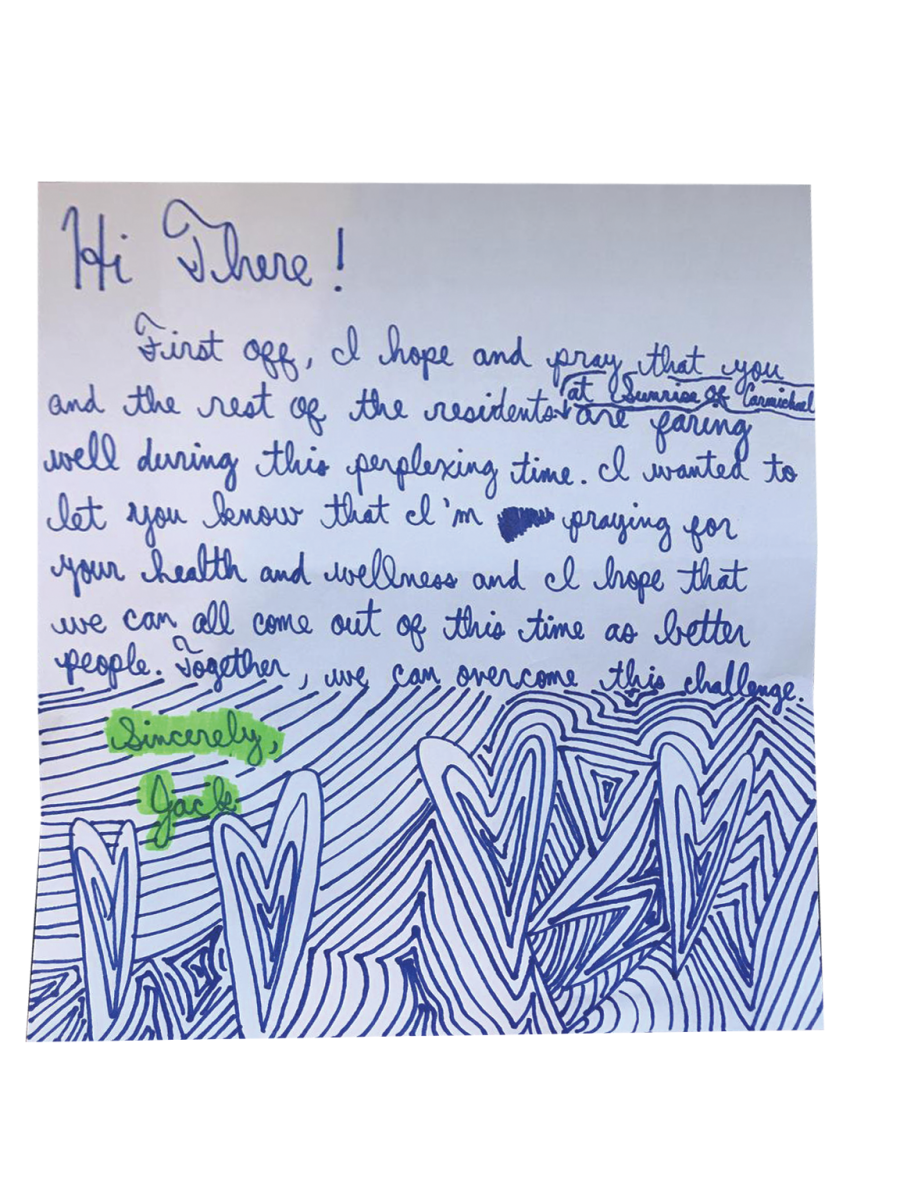 Hi There!
First off, I hope and pray that you
and the rest of the residents at Sunrise of Carmichael are faring
well during this perplexing time. I wanted to
let you know that I'm praying for
your health and wellness and I hope that
we can all come out of this time as better
people. Together, we can overcome this challenge.
Sincerely,
Jack